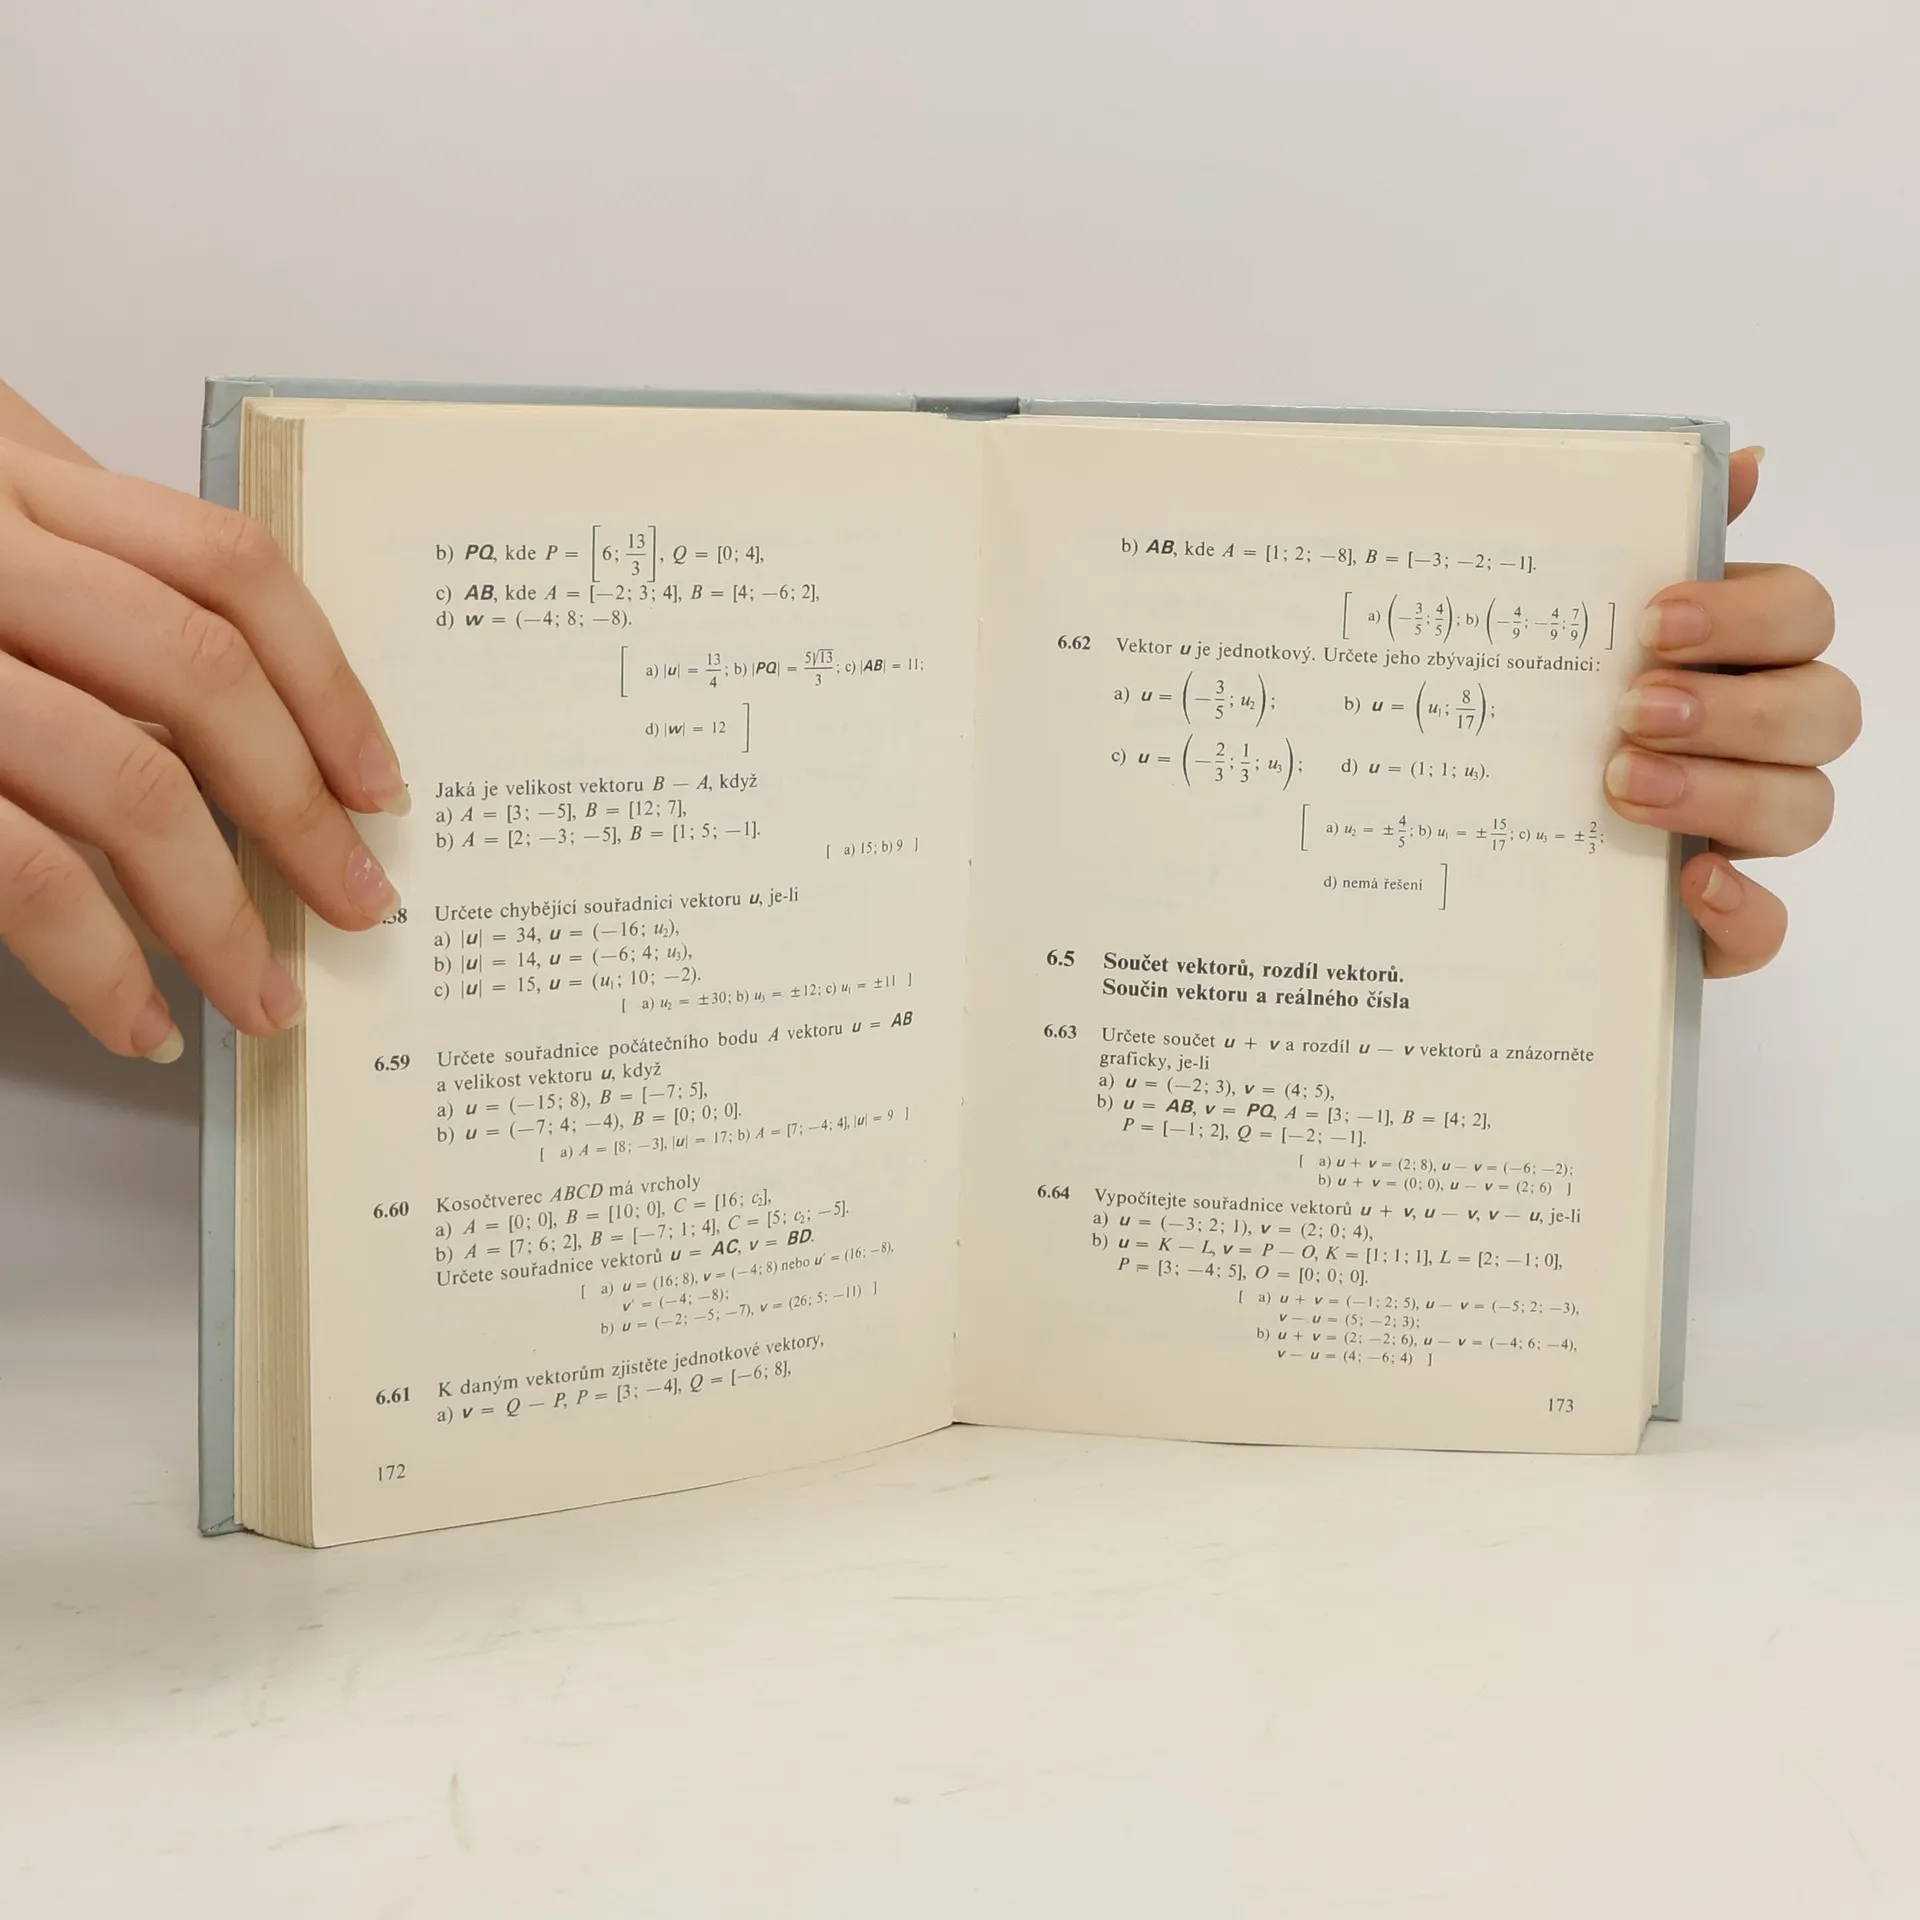 b) PQ, kde P = [6; 13/3], Q = [0; 4],
c) AB, kde A = [—2; 3; 4], B = [4; —6; 2],
d) w = (—4; 8; —8).
[ a) |u| = 13/4; b) |PQ| = 5√13/3; c) |AB| = 11;
d) |w| = 12 ]
Jaká je velikost vektoru B — A, když
a) A = [3; —5], B = [12; 7],
b) A = [2; —3; —5], B = [1; 5; —1].
[ a) 15; b) 9 ]
.58 Určete chybějící souřadnici vektoru u, je-li
a) |u| = 34, u = (—16; u₂),
b) |u| = 14, u = (—6; 4; u₃),
c) |u| = 15, u = (u₁; 10; —2).
[ a) u₂ = ±30; b) u₃ = ±12; c) u₁ = ±11 ]
6.59 Určete souřadnice počátečního bodu A vektoru u = AB
a velikost vektoru u, když
a) u = (—15; 8), B = [—7; 5],
b) u = (—7; 4; —4), B = [0; 0; 0].
[ a) A = [8; —3], |u| = 17; b) A = [7; —4; 4], |u| = 9 ]
6.60 Kosočtverec ABCD má vrcholy
a) A = [0; 0], B = [10; 0], C = [16; c₂],
b) A = [7; 6; 2], B = [—7; 1; 4], C = [5; c₂; —5].
Určete souřadnice vektorů u = AC, v = BD.
[ a) u = (16; 8), v = (—4; 8) nebo u′ = (16; —8),
v′ = (—4; —8);
b) u = (—2; —5; —7), v = (26; 5; —11) ]
6.61 K daným vektorům zjistěte jednotkové vektory,
a) v = Q — P, P = [3; —4], Q = [—6; 8],
172
b) AB, kde A = [1; 2; —8], B = [—3; —2; —1].
[ a) (—3/5; 4/5); b) (—4/9; —4/9; 7/9) ]
6.62 Vektor u je jednotkový. Určete jeho zbývající souřadnici:
a) u = (—3/5; u₂); b) u = (u₁; 8/17);
c) u = (—2/3; 1/3; u₃); d) u = (1; 1; u₃).
[ a) u₂ = ±4/5; b) u₁ = ±15/17; c) u₃ = ±2/3;
d) nemá řešení ]
6.5 Součet vektorů, rozdíl vektorů.
Součin vektoru a reálného čísla
6.63 Určete součet u + v a rozdíl u — v vektorů a znázorněte
graficky, je-li
a) u = (—2; 3), v = (4; 5),
b) u = AB, v = PQ, A = [3; —1], B = [4; 2],
P = [—1; 2], Q = [—2; —1].
[ a) u + v = (2; 8), u — v = (—6; —2);
b) u + v = (0; 0), u — v = (2; 6) ]
6.64 Vypočítejte souřadnice vektorů u + v, u — v, v — u, je-li
a) u = (—3; 2; 1), v = (2; 0; 4),
b) u = K — L, v = P — O, K = [1; 1; 1], L = [2; —1; 0],
P = [3; —4; 5], O = [0; 0; 0].
[ a) u + v = (—1; 2; 5), u — v = (—5; 2; —3),
v — u = (5; —2; 3);
b) u + v = (2; —2; 6), u — v = (—4; 6; —4),
v — u = (4; —6; 4) ]
173